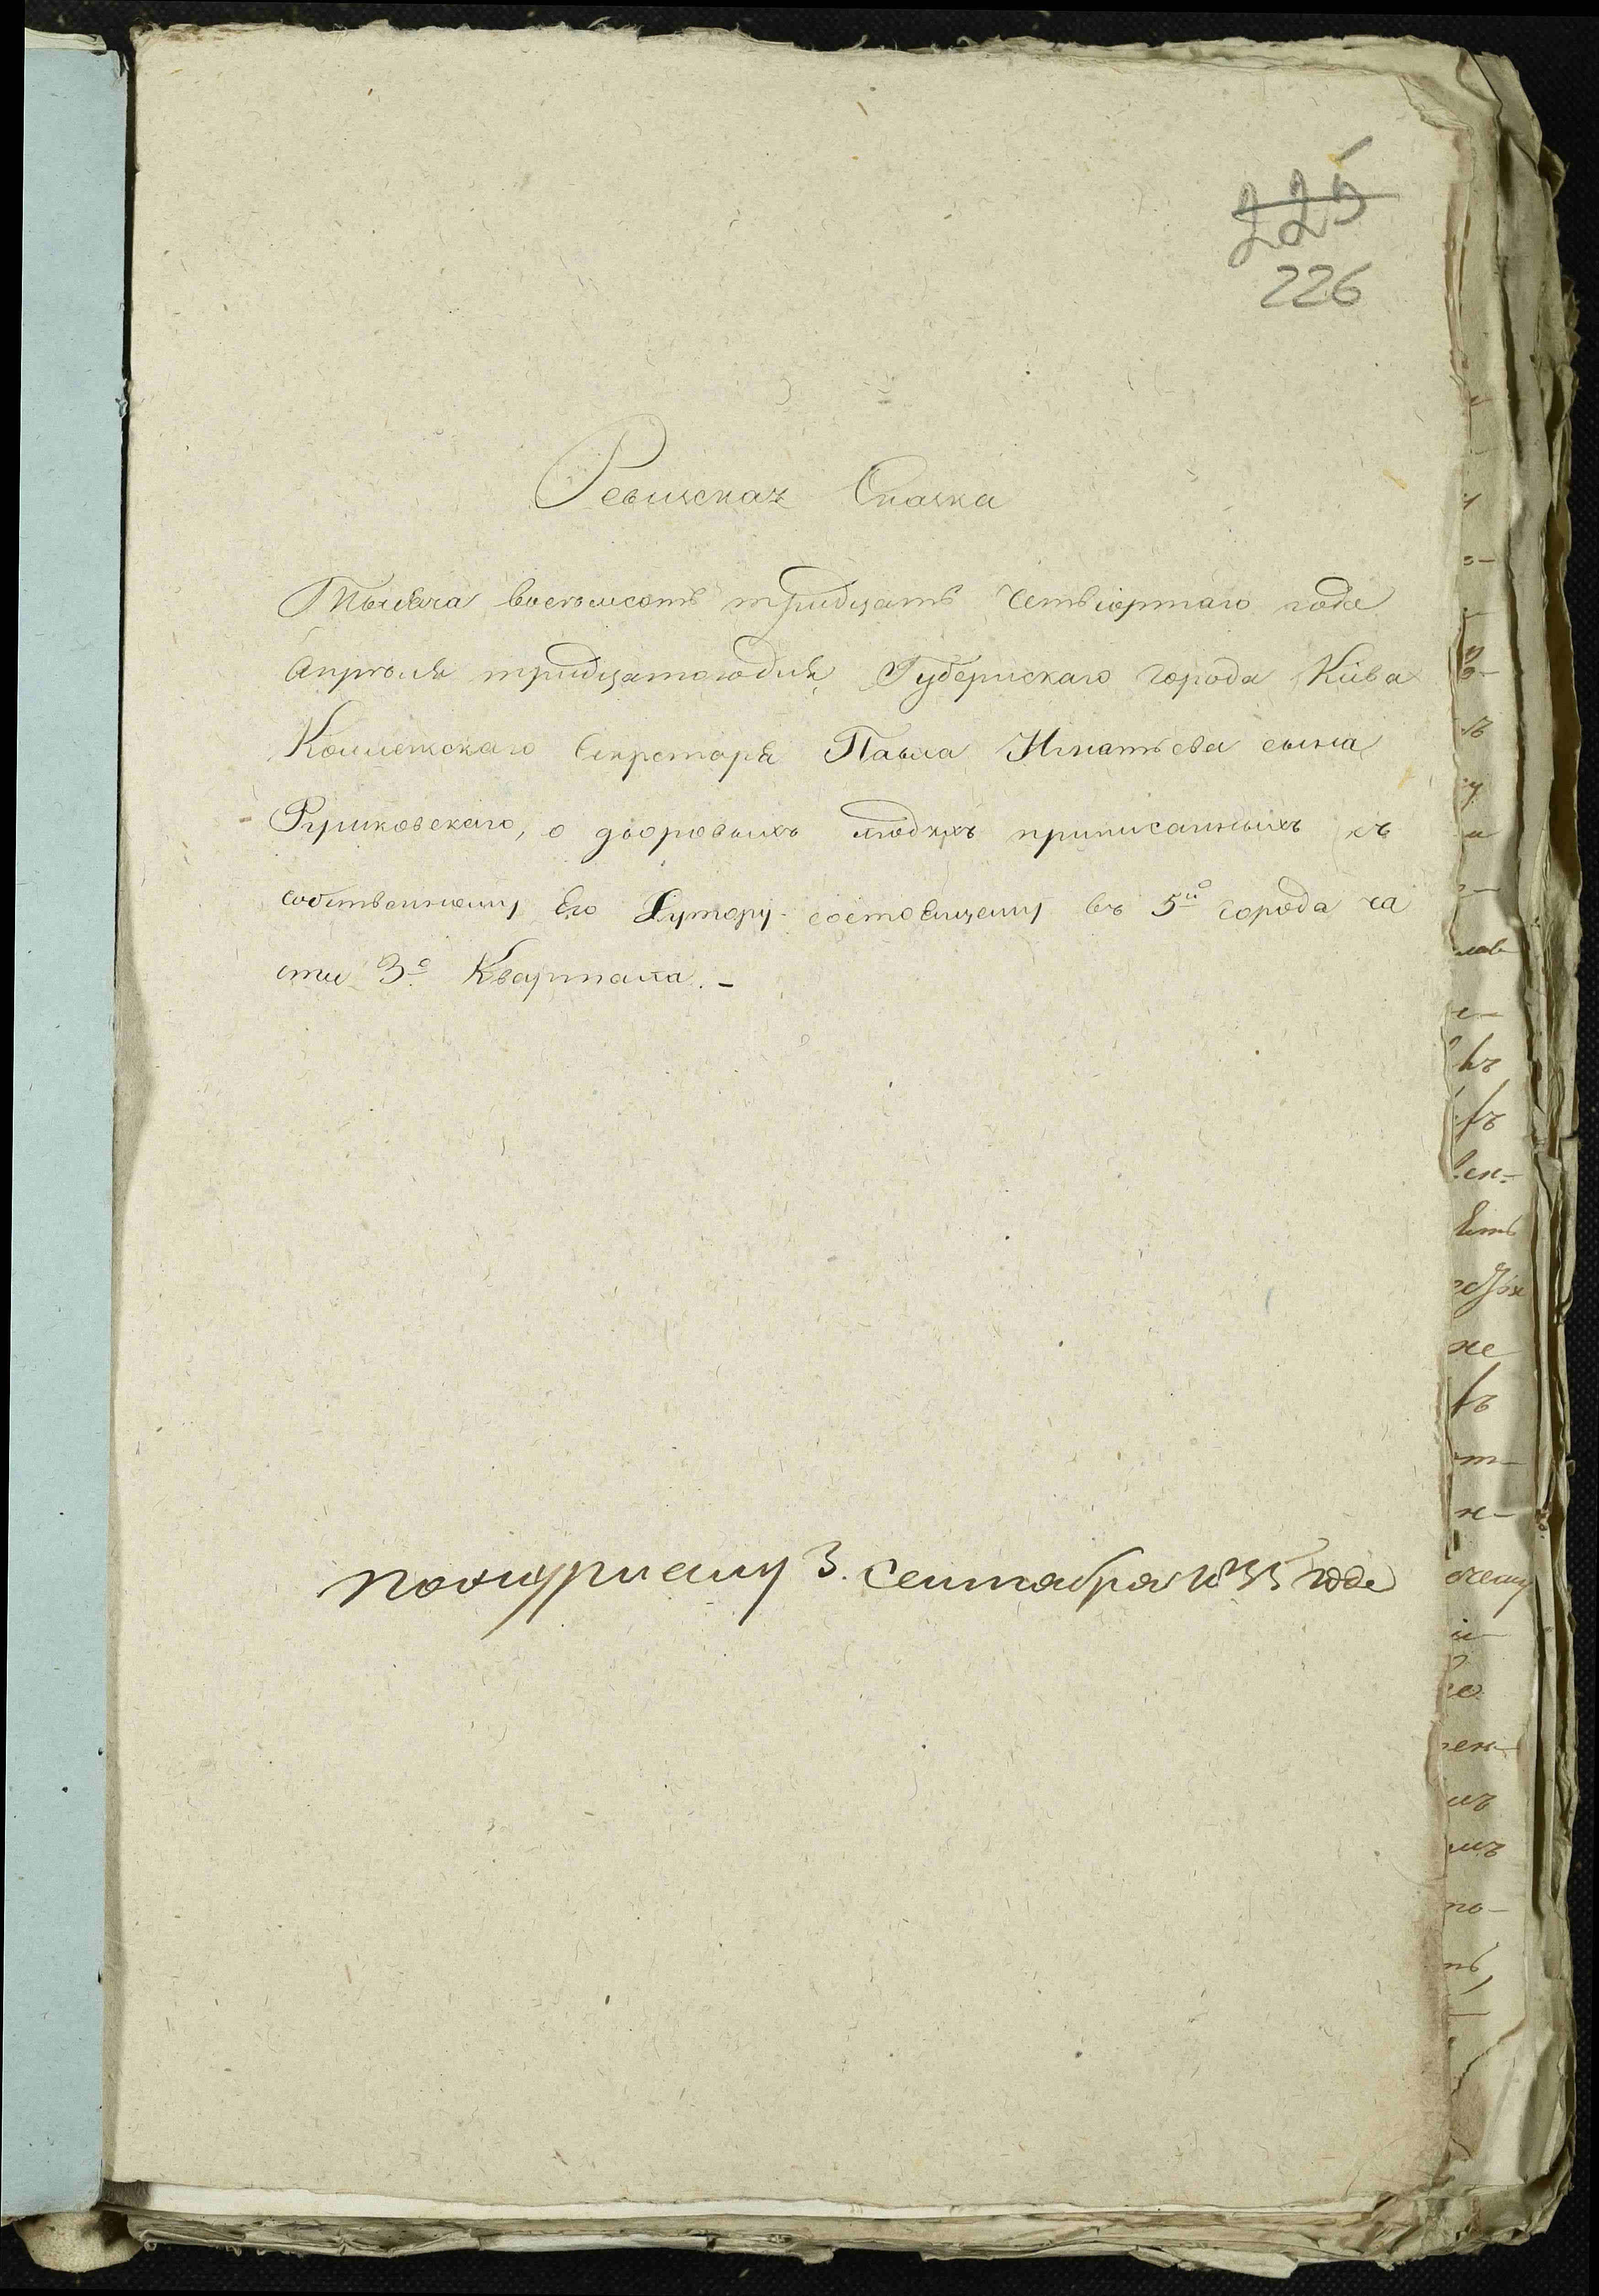 225
226
Ревизская Сказка
Тысяча восемьсотъ тридцать четвіортаго года
Апреля тридцатогодня, Губернскаго города Кіева
Коллежскаго Секретаря Павла Игнатьева сына
Руликовскаго, о дворовыхъ людяхъ приписанныхъ къ
собственному Его Хутору состоящему въ 5й города ча
сти 3о Квартала. –
3. Сентября 1835 года